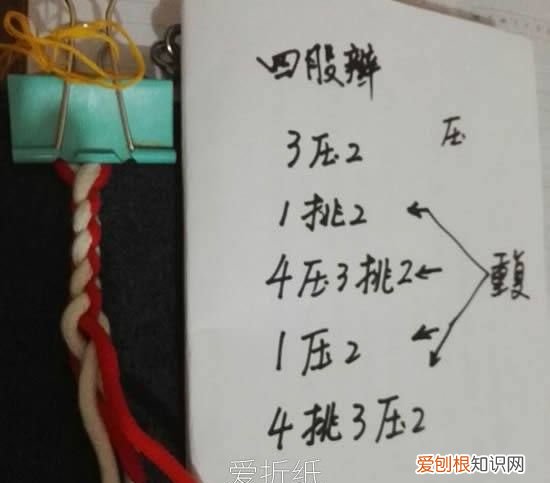 四股辫
3压2
压
1挑2
4压3挑2
重复
1压2
4挑3压2
爱折纸
爱刨根知识网
www.baogenzhishi.com